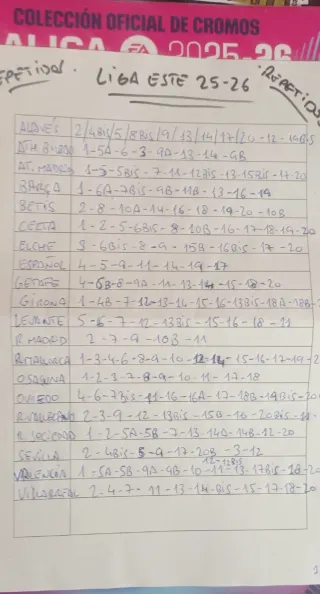 COLECCIÓN OFICIAL DE CROMOS
LALIGA EA 2025-26
REPETIDOS. LIGA ESTE 25-26 REPETIDOS
ALAVÉS 2/4Bis/5/8Bis/9/13/14/17/20-12-19Bis
ATH. BILBAO 1-5A-6-3-9A-13-14-9B
AT. MADRID 1-3-5Bis-7-11-12Bis-13-15Bis-17-20
BARÇA 1-6A-7Bis-9B-11B-13-16-19
BETIS 2-8-10A-14-16-18-19-20-10B
CELTA 1-2-5-6Bis-8-10B-16-17-18-19-20
ELCHE 3-6Bis-8-9-15B-16Bis-17-20
ESPAÑOL 4-5-9-11-14-19-17
GETAFE 4-6B-8-9A-11-13-14-15-18-20
GIRONA 1-4B-7-12-13-14-15-16-13Bis-18A-18B-
LEVANTE 5-6-7-12-13Bis-15-16-18-11
R. MADRID 2-7-9-10B-11
R. MALLORCA 1-3-4-6-8-9-10-12-14-15-16-17-19-2
OSASUNA 1-2-3-7-8-9-10-11-17-18
OVIEDO 4-6-7Bis-11-16-16A-17-18B-19Bis-20
R. VALLECANO 2-3-9-12-13Bis-15A-16-20Bis-11-
R. SOCIEDAD 1-2-5A-5B-7-13-14A-14B-12-20
SEVILLA 2-4Bis-5-9-17-20B-3-12
12-12Bis
VALENCIA 1-5A-5B-9A-9B-10-11-13-17Bis-18-20
VILLARREAL 2-4-7-11-13-14-Bis-15-17-18-20